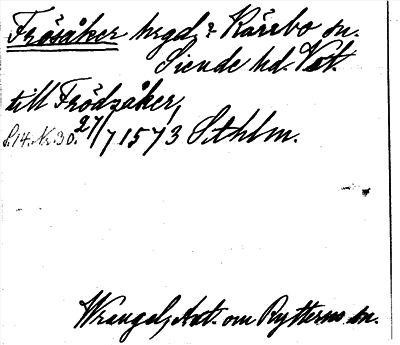 Frösåker hrgd, i Kärrbo sn.
Siende hd. Vstl.
till Frödzåker,
S.14. Nr. 30. 27/7 1573 Sthlm.
Wrangel, Ant. om Rytterns sn.